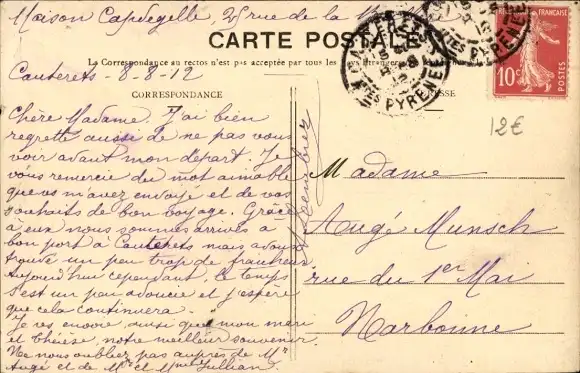 Maison Capdegelle, 25 rue de la
CARTE POSTALE
La Correspondance au recto n'est pas acceptée par tous les pays étrangers
Cauterets - 8-8-12
CORRESPONDANCE
Chère Madame. J'ai bien
regretté aussi de ne pas vous
voir avant mon départ. Je
vous remercie du mot aimable
que vous m'avez envoyé et de vos
souhaits de bon voyage. Grâce
à eux nous sommes arrivés à
bon port à Cauterets mais avons
trouvé un peu trop de fraîcheur
Aujourd'hui cependant, le temps
s'est un peu adouci et j'espère
que cela continuera.
Je vs envoie, ainsi que mon mari
et Thérèse, notre meilleur souvenir.
Ne nous oubliez pas auprès de Mr
Augé et de Mr et Mme Jullian.
CAUTERETS
Htes PYRENEES
PYRENEES
FRANÇAISE
10c
POSTES
12€
Madame
Augé Munsch
rue du 1er Mai
Narbonne